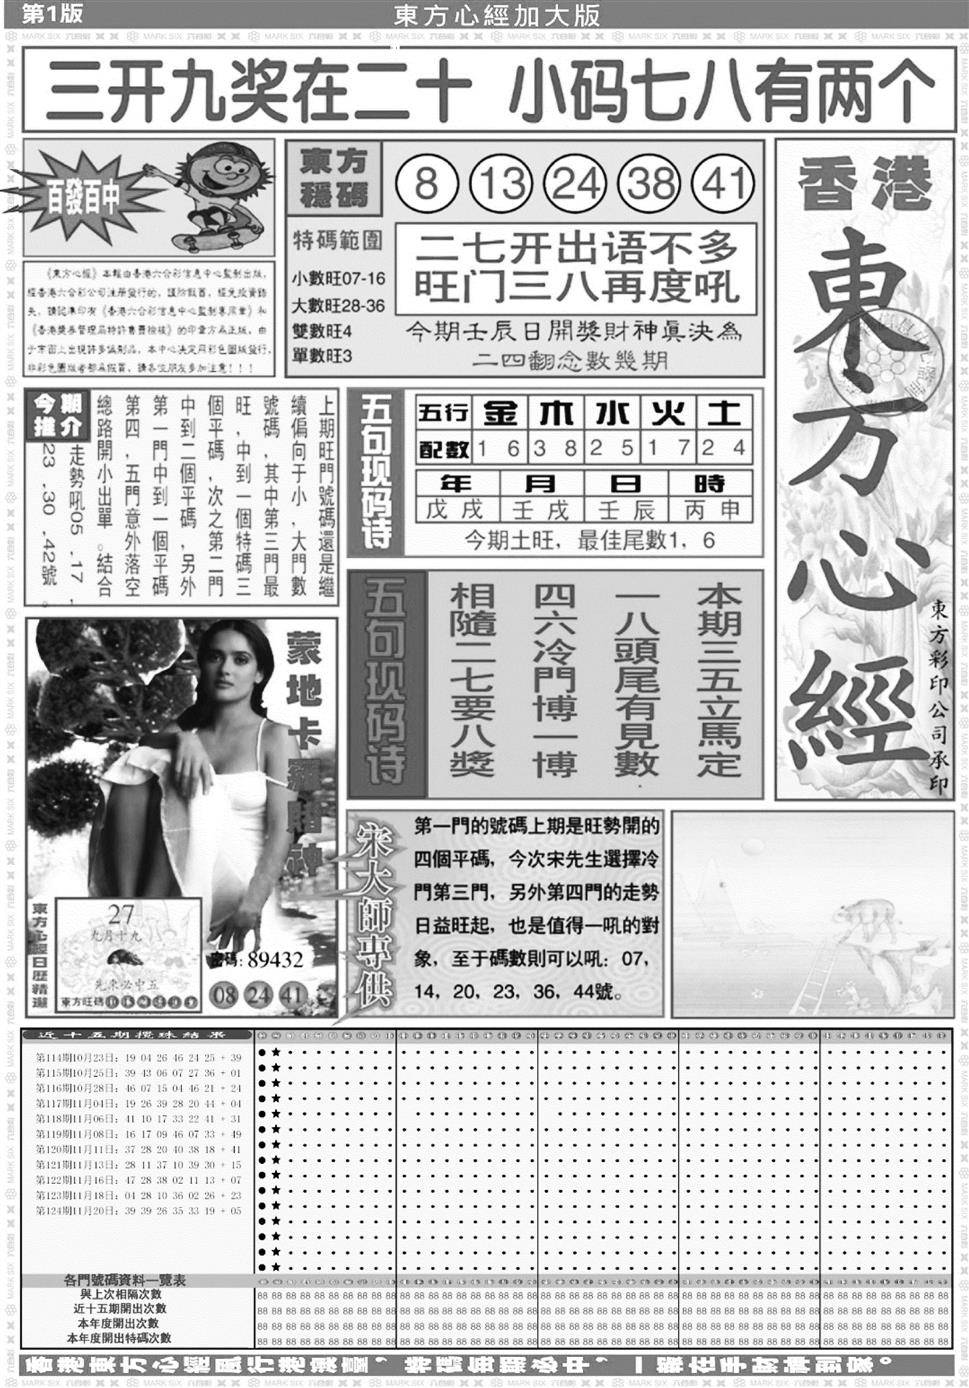 第1版
東方心經加大版
三开九奖在二十 小码七八有两个
百發百中
《東方心經》本報由香港六合彩信息中心監制出版，
經香港六合彩公司注册發行的，謹防假冒，經免投資錯
失，請認準印有《香港六合彩信息中心監制專用章》和
《香港獎券管理局特許書賣檢核》的印章方爲正版，由
于市面上出現許多僞制品，本中心决定用彩色圖版發行，
非彩色圖版者都爲假冒，請各位朋友多加注意！！！
東方
穩碼
8 13 24 38 41
特碼範圍
小數旺07-16
大數旺28-36
雙數旺4
單數旺3
二七开出语不多
旺门三八再度吼
今期壬辰日開獎財神真決為
二四翻念數幾期
香港
東方心經
東方彩印公司承印
今期
推介
上期旺門號碼還是繼
續偏向于小，大門數
號碼，其中第三門最
旺，中到一個特碼三
個平碼，次之第二門
中到二個平碼，另外
第一門中到一個平碼
第四，五門意外落空
總路開小出單。結合
走勢吼05，17，
23，30，42號。
五句现码诗
五行 金 木 水 火 土
配數 1 6 3 8 2 5 1 7 2 4
年 月 日 時
戊戌 壬戌 壬辰 丙申
今期土旺，最佳尾數1，6
五句现码诗
本期三五立馬定
一八頭尾有見數
四六冷門博一博
相隨二七要八獎
蒙地卡羅賭神
東方心經日歷精選
27
九月十九
先來必中五
東方旺碼
密碼：89432
08 24 41
宋大師專供
第一門的號碼上期是旺勢開的
四個平碼，今次宋先生選擇冷
門第三門，另外第四門的走勢
日益旺起，也是值得一吼的對
象，至于碼數則可以吼：07，
14，20，23，36，44號。
近十五期攪珠結果
第114期10月23日：19 04 26 46 24 25 + 39
第115期10月25日：39 43 06 07 27 36 + 01
第116期10月28日：46 07 15 04 46 21 + 24
第117期11月04日：19 26 39 28 20 44 + 04
第118期11月06日：41 10 17 33 22 41 + 31
第119期11月08日：16 17 09 46 07 33 + 49
第120期11月11日：37 28 20 40 38 18 + 41
第121期11月13日：28 11 37 10 39 30 + 15
第122期11月16日：47 28 38 02 11 13 + 07
第123期11月18日：04 28 10 36 02 26 + 23
第124期11月20日：39 39 26 35 33 19 + 05
各門號碼資料一覽表
與上次相隔次數
近十五期開出次數
本年度開出次數
本年度開出特碼次數
香港東方心經風行港澳臺，特碼每期必中，一報在手財神到家。